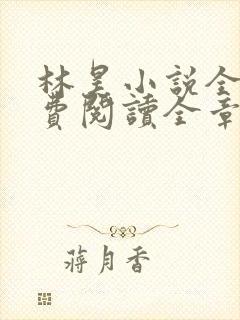 林昊小說全
費閱讀全章
蔣月香